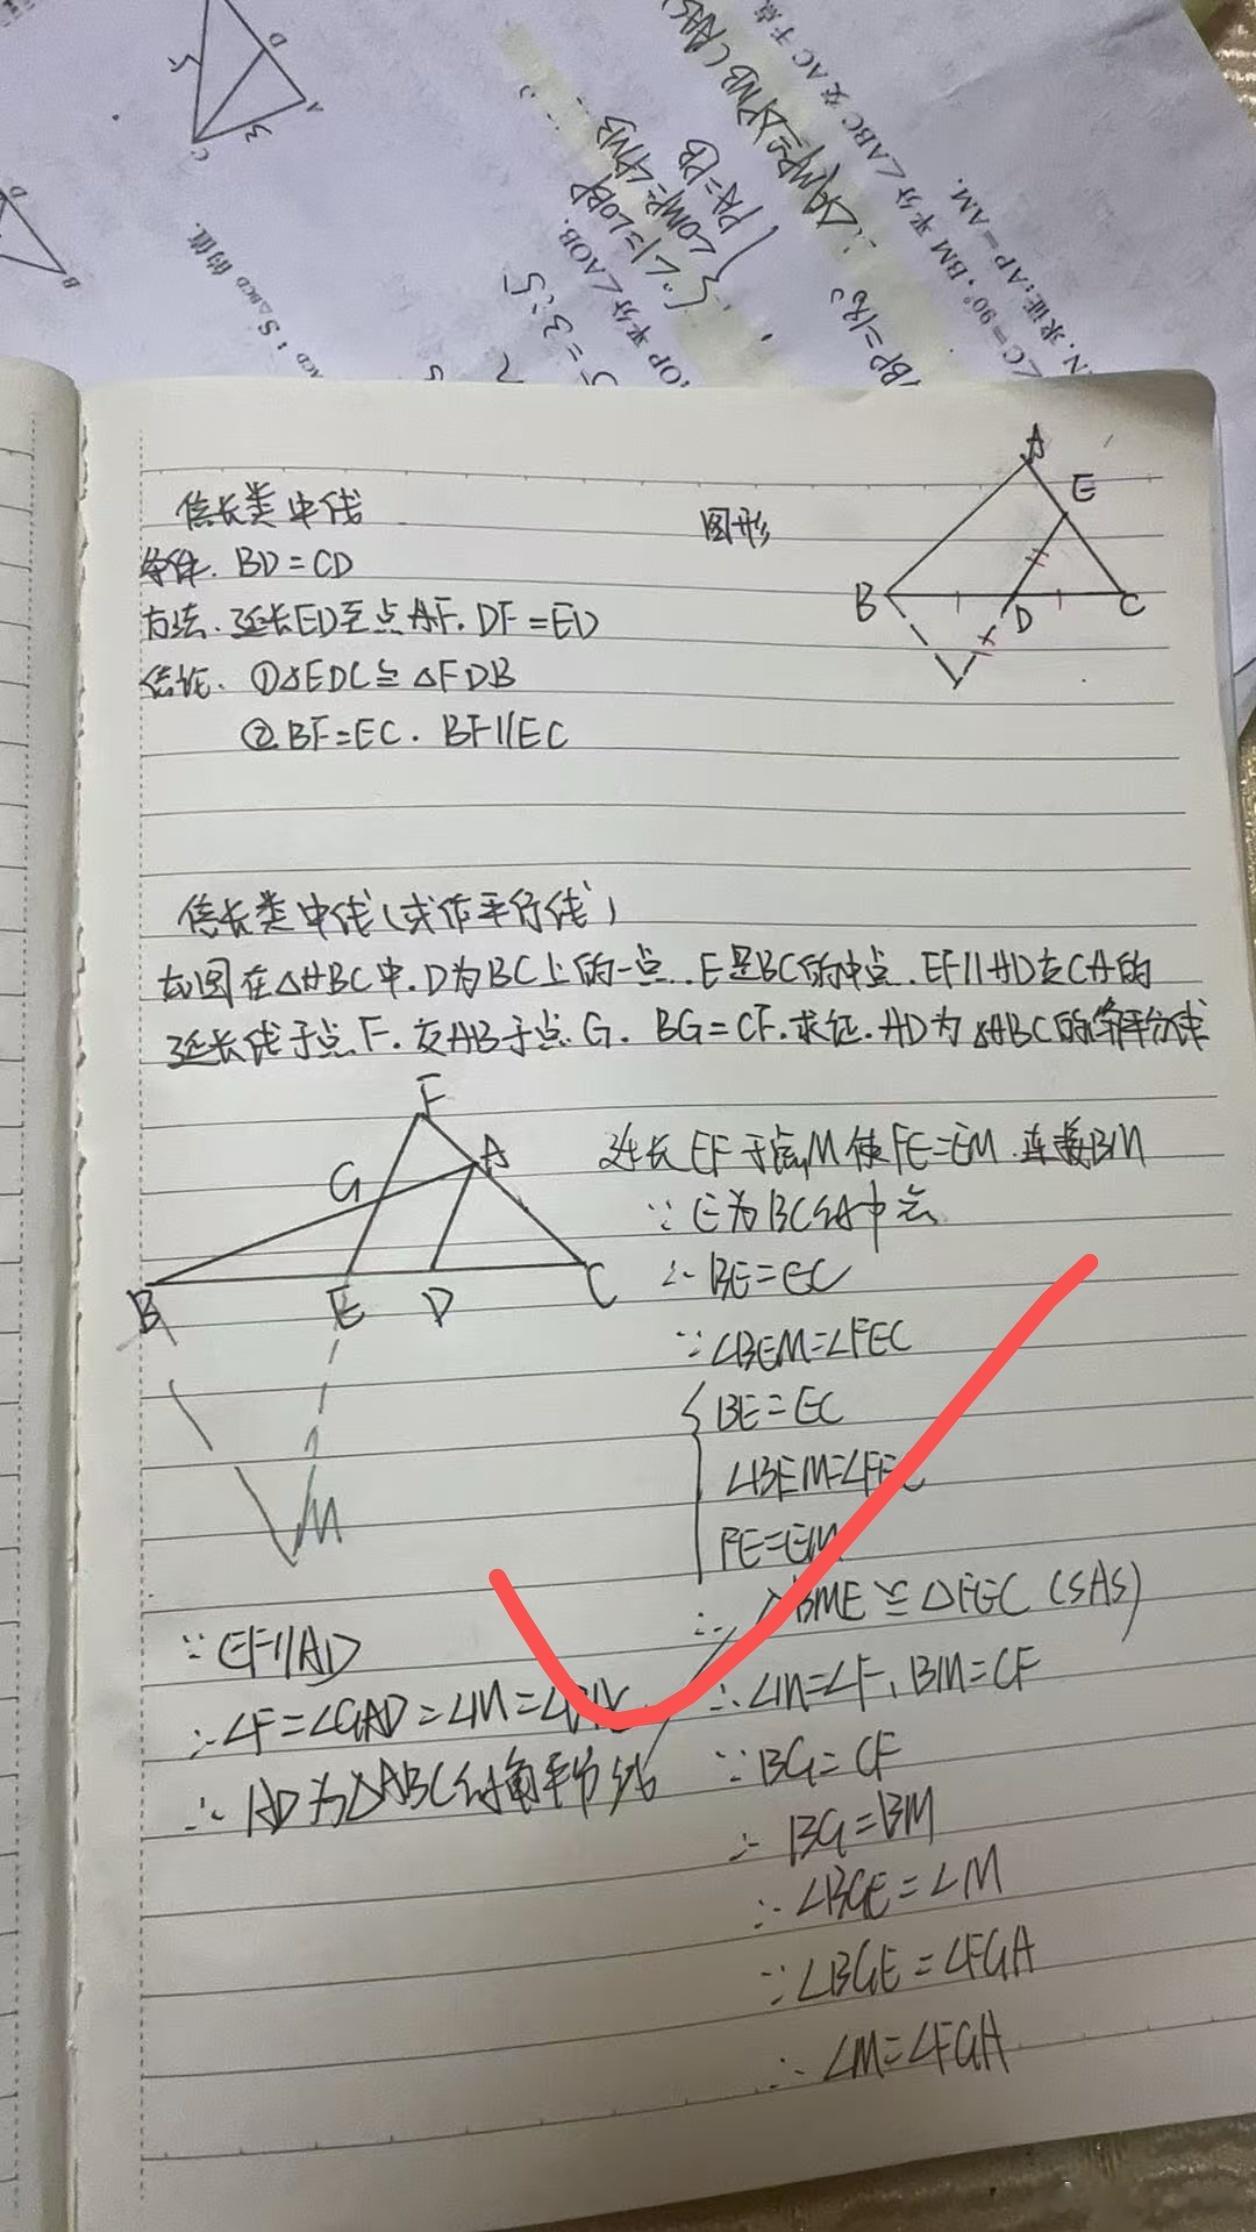 5
D
A
C
3
D
B
S△BCD的值.
ACD:
OP平分∠AOB.
=3:5
∠1=∠OBP
∠OMP=∠PNB
PA=PB
∴△QMP≌△PNB(AAS
∠C=90°,BM平分∠ABC交AC于点
N.求证:AP=AM.
倍长类中线
图形
A
E
B
D
C
条件.BD=CD
方法.延长ED至点F.DF=ED
结论.①△EDC≌△FDB
②BF=EC.BF∥EC
倍长类中线(或作平行线)
如图在△ABC中.D为BC上的一点.E是BC的中点.EF∥AD交CA的
延长线于点F.交AB于点G.BG=CF.求证.AD为△ABC的角平分线
F
G
A
B
E
D
C
M
延长EF于点M使FE=EM.连接BM
∵E为BC的中点
∴BE=EC
∵∠BEM=∠FEC
BE=EC
∠BEM=∠FEC
FE=EM
∴△BME≌△FEC(SAS)
∴∠M=∠F,BM=CF
∵BG=CF
∴BG=BM
∴∠BGE=∠M
∵∠BGE=∠FGA
∴∠M=∠FGA
∵EF∥AD
∴∠F=∠GAD=∠M=
∴AD为△ABC的角平分线